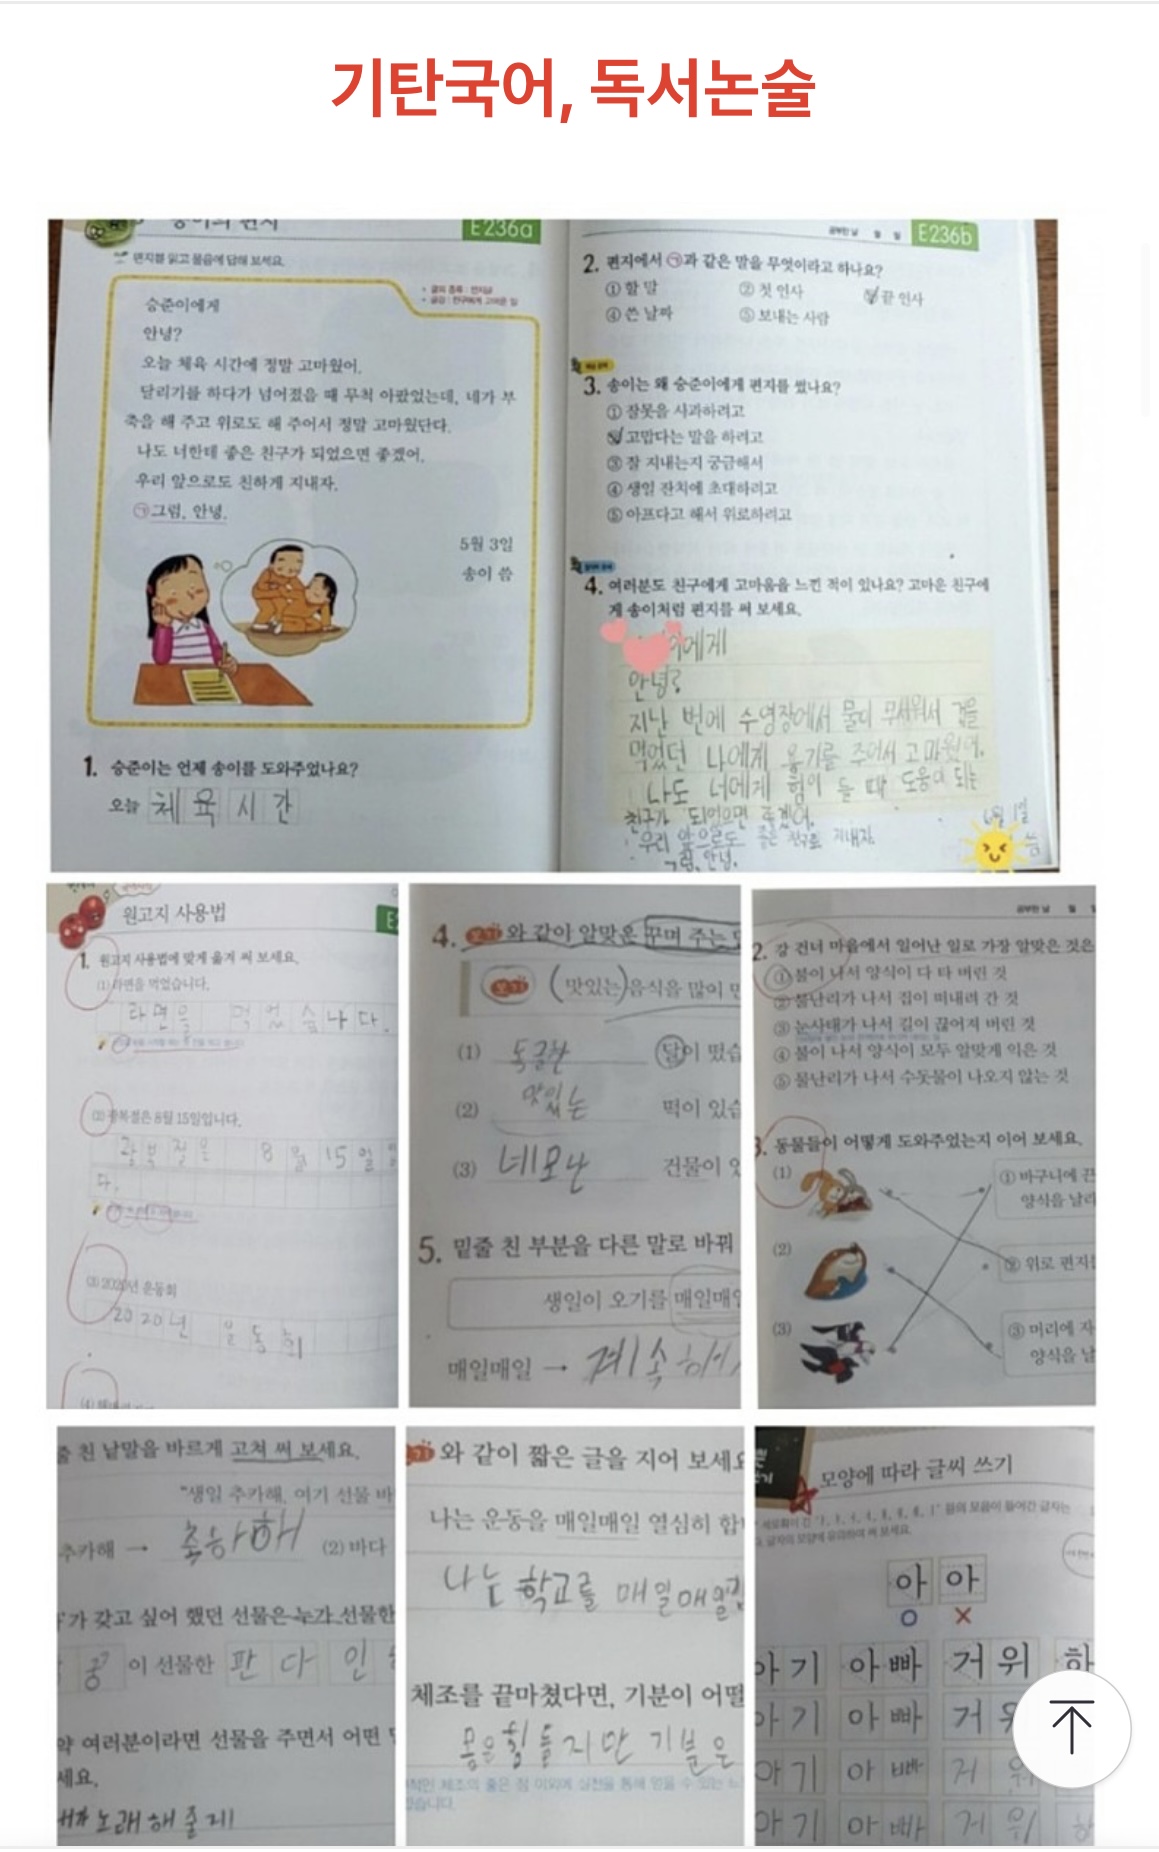 기탄국어, 독서논술
E236a
편지를 읽고 물음에 답해 보세요.
승준이에게
안녕?
오늘 체육 시간에 정말 고마웠어.
달리기를 하다가 넘어졌을 때 무척 아팠었는데, 네가 부
축을 해 주고 위로도 해 주어서 정말 고마웠단다.
나도 너한테 좋은 친구가 되었으면 좋겠어.
우리 앞으로도 친하게 지내자.
㉠그럼, 안녕.
5월 3일
송이 씀
1. 승준이는 언제 송이를 도와주었나요?
오늘 체육시간
공부한 날 월 일 E236b
2. 편지에서 ㉠과 같은 말을 무엇이라고 하나요?
① 할 말 ② 첫 인사 끝 인사
④ 쓴 날짜 ⑤ 보내는 사람
3. 송이는 왜 승준이에게 편지를 썼나요?
① 잘못을 사과하려고
고맙다는 말을 하려고
③ 잘 지내는지 궁금해서
④ 생일 잔치에 초대하려고
⑤ 아프다고 해서 위로하려고
4. 여러분도 친구에게 고마움을 느낀 적이 있나요? 고마운 친구에
게 송이처럼 편지를 써 보세요.
에게
안녕?
지난 번에 수영장에서 물이 무서워서 겁을
먹었던 나에게 용기를 주어서 고마웠어.
나도 너에게 힘이 들 때 도움이 되는
친구가 되었으면 좋겠어.
우리 앞으로도 좋은 친구로 지내자.
그럼, 안녕.
6월 1일
원고지 사용법
1. 원고지 사용법에 맞게 옮겨 써 보세요.
(1) 라면을 먹었습니다.
라면을 먹었습니다.
(2) 광복절은 8월 15일입니다.
광복절은 8월 15일
다.
(3) 2020년 운동회
2020년 운동회
4. 보기 와 같이 알맞은 꾸며 주는
보기 (맛있는) 음식을 많이
(1) 동그란 달이 떴습
(2) 맛있는 떡이 있습
(3) 네모난 건물이
5. 밑줄 친 부분을 다른 말로 바꿔
생일이 오기를 매일매일
매일매일 → 계속해서
공부한 날 월
2. 강 건너 마을에서 일어난 일로 가장 알맞은 것은
① 불이 나서 양식이 다 타 버린 것
② 물난리가 나서 집이 떠내려 간 것
③ 눈사태가 나서 길이 끊어져 버린 것
④ 불이 나서 양식이 모두 알맞게 익은 것
⑤ 물난리가 나서 수돗물이 나오지 않는 것
3. 동물들이 어떻게 도와주었는지 이어 보세요.
(1) ① 바구니에 끈
양식을 날라
(2) ② 위로 편지
(3) ③ 머리에 자
양식을 날
줄 친 낱말을 바르게 고쳐 써 보세요.
"생일 추카해. 여기 선물
추카해 → 축하해 (2) 바다
가 갖고 싶어 했던 선물은 누가 선물한
콩 이 선물한 판다인
약 여러분이라면 선물을 주면서 어떤
세요.
내가 노래해줄게
와 같이 짧은 글을 지어 보세요
나는 운동을 매일매일 열심히 합
나는 학교를 매일매일
체조를 끝마쳤다면, 기분이 어떨
몸은 힘들지만 기분은
모양에 따라 글씨 쓰기
아 아
O X
아기 아빠 거위 하
아기 아빠 거위
아기 아빠 거위
아기 아빠 거위 하